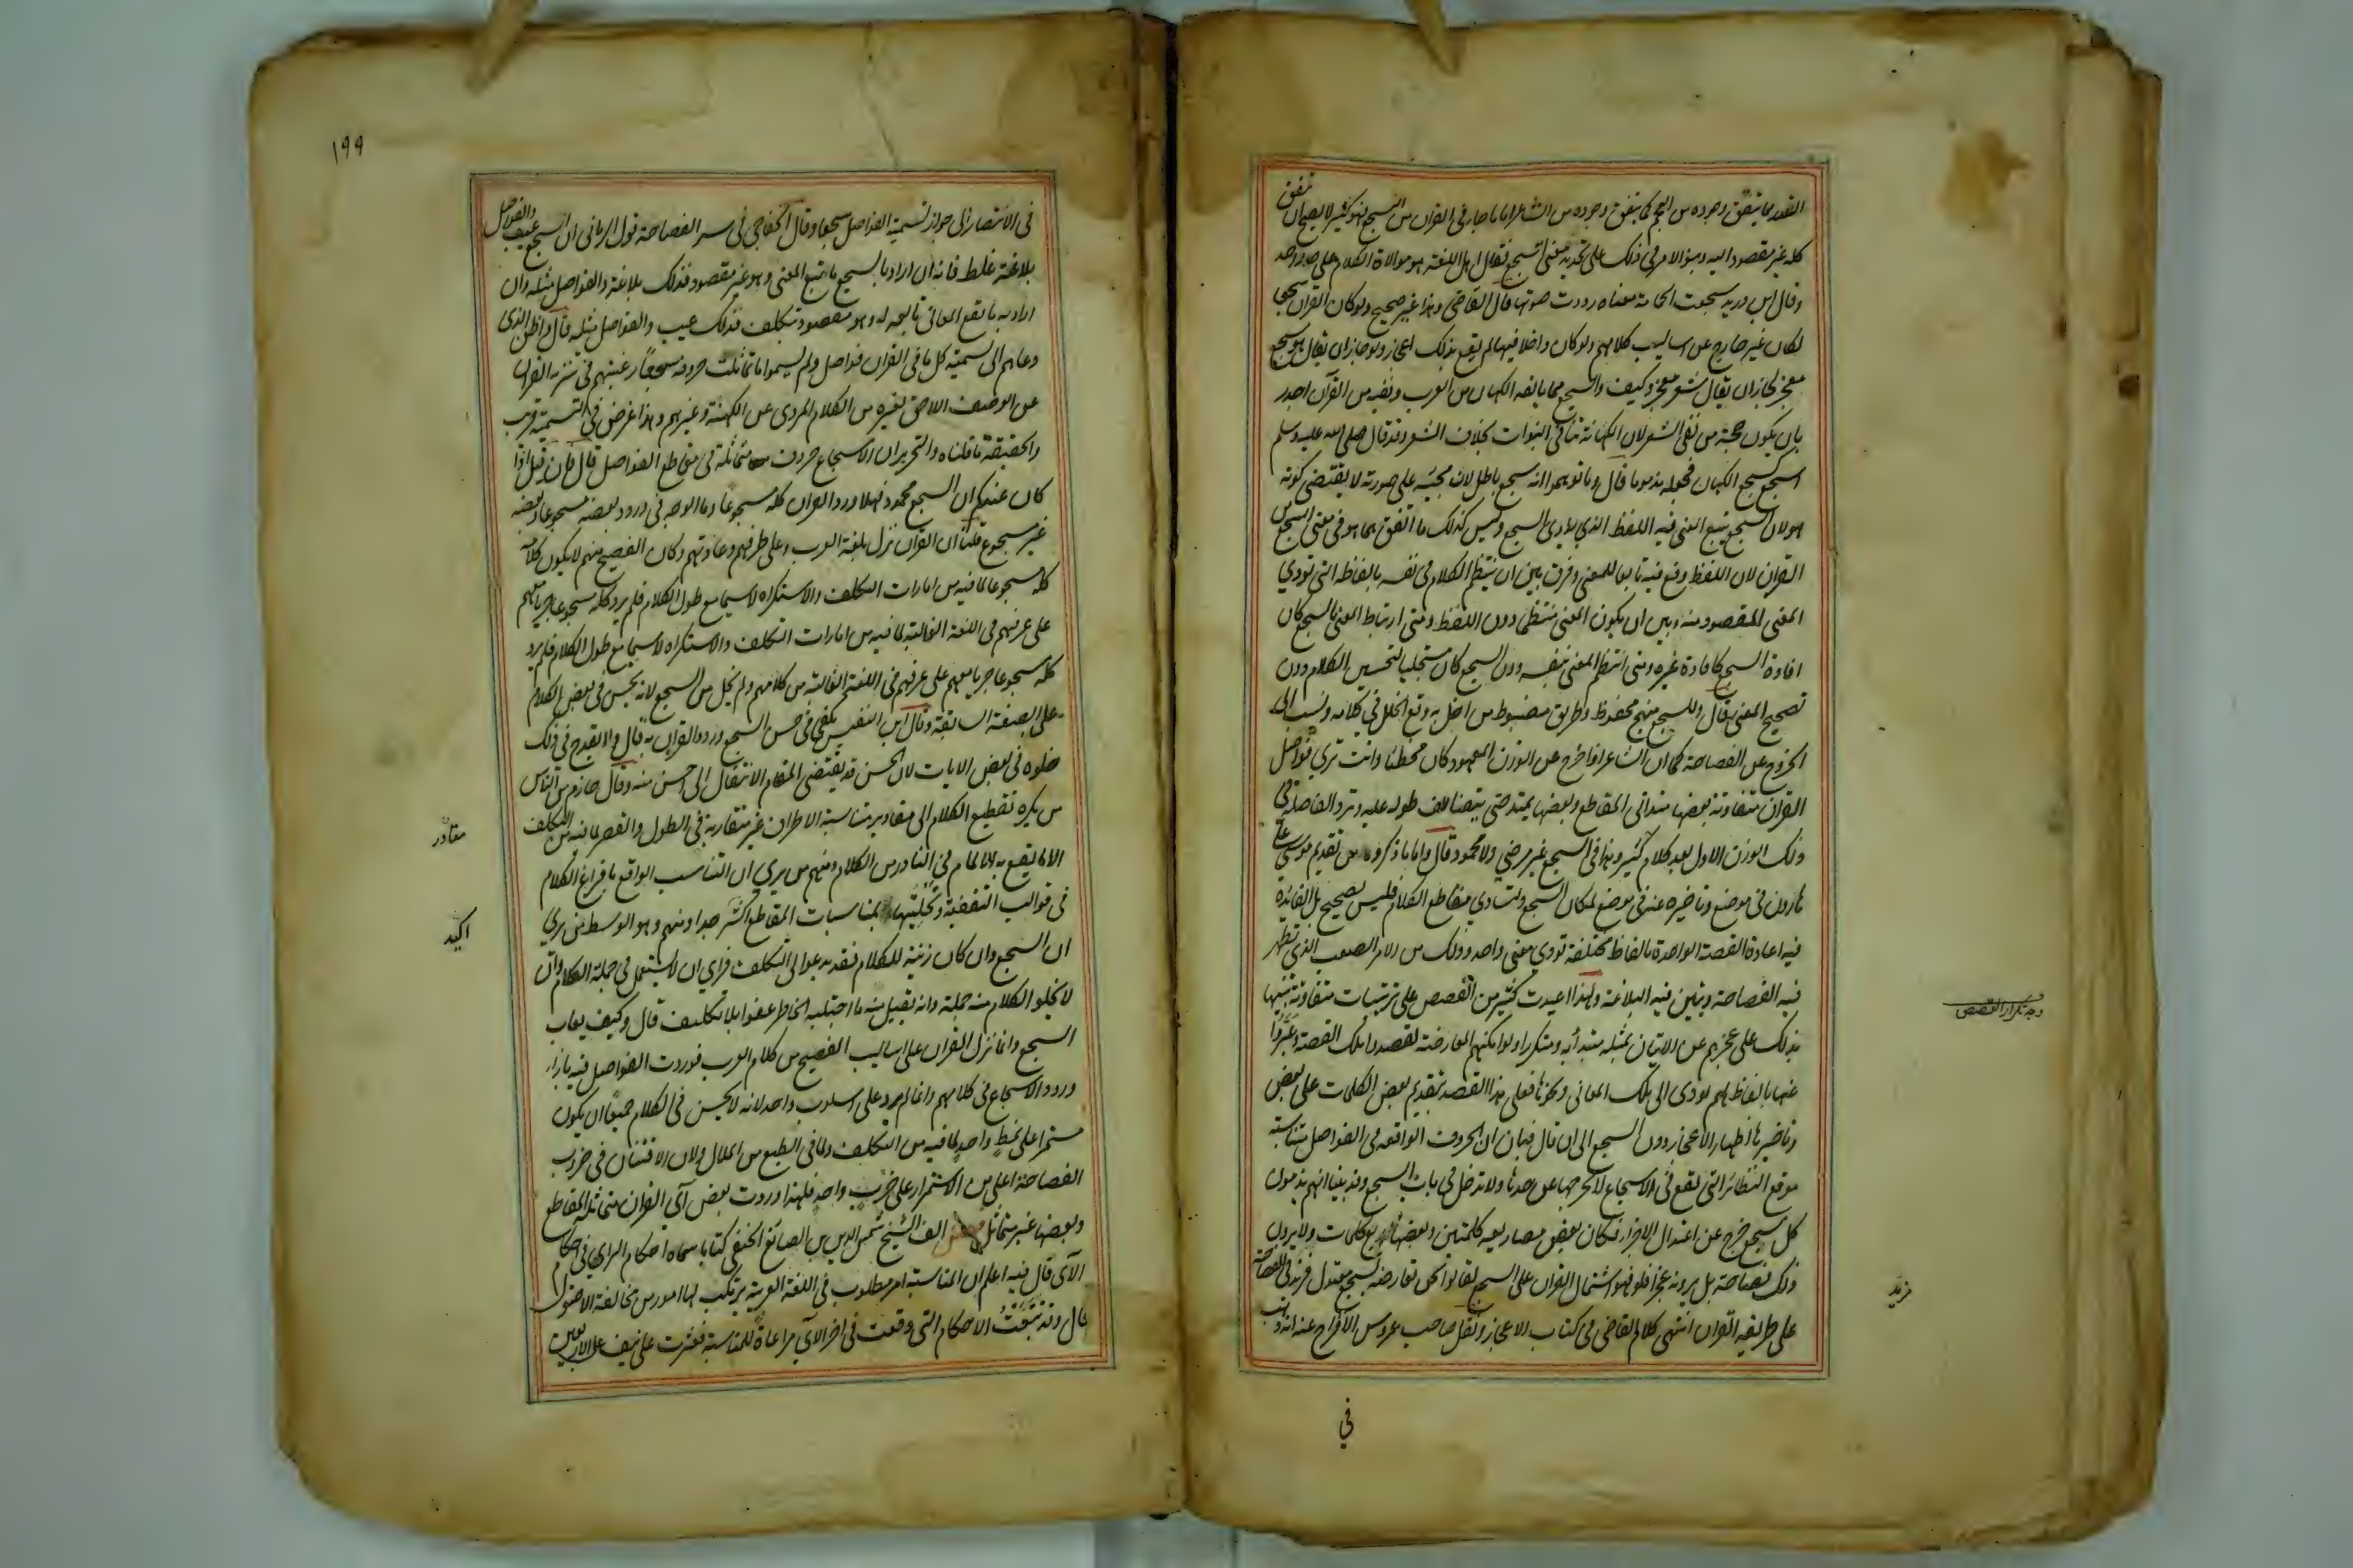 القدر مما يتفق وجوده من المفحم كما يتفق وجوده من الشاعر واما ما جاء في القران من السجع فهو كثير لا يصح ان يتفق
كله غير مقصود اليه وبنوا الامر في ذلك على تحديد معنى السجع فقال اهل اللغة هو موالاة الكلام على حد واحد
وقال ابن دريد سجعت الحمامة معناه رددت صوتها قال القاضي وهذا غير صحيح ولو كان القران سجعا
لكان غير خارج عن اساليب كلامهم ولو كان داخلا فيها لم يقع بذلك اعجاز ولو جاز ان يقال هو سجع
معجز لجاز ان يقال شعر معجز وكيف والسجع مما يالفه الكهان من العرب ونفيه من القرآن اجدر
بان يكون حجة من نفي الشعر لان الكهانة تنافي النبوات بخلاف الشعر وقد قال صلى الله عليه وسلم
اسجع كسجع الكهان فجعله مذموما قال وما توهموا انه سجع باطل لان مجيئه على صورته لا يقتضي كونه
هو لان السجع يتبع المعنى فيه اللفظ الذي يؤدي السجع وليس كذلك ما اتفق مما هو في معنى السجع من
القران لان اللفظ وقع فيه تابعا للمعنى وفرق بين ان ينتظم الكلام في نفسه بالفاظه التي تودي
المعنى المقصود منه وبين ان يكون المعنى منتظما دون اللفظ ومتى ارتبط المعنى بالسجع كان
افادة السجع كافادة غيره ومتى انتظم المعنى بنفسه دون السجع كان مستجلبا لتحسين الكلام دون
تصحيح المعنى قال وللسجع منهج محفوظ وطريق مضبوط من اخل به وقع الخلل في كلامه ونسب الى
الخروج عن الفصاحة كما ان الشاعر اذا خرج عن الوزن المعهود كان مخطئا وانت ترى فواصل
القران متفاوتة بعضها متداني المقاطع وبعضها يمتد حتى يتضاعف طوله عليه وترد الفاصلة في
ذلك الوزن الاول بعد كلام كثير وهذا في السجع غير مرضي ولا محمود قال واما ما ذكروه من تقديم موسى على
هارون في موضع وتاخيره عنه في موضع لمكان السجع ولتساوي مقاطع الكلام فليس بصحيح بل الفائدة
فيه اعادة القصة الواحدة بالفاظ مختلفة تودي معنى واحد وذلك من الامر الصعب الذي تظهر
فيه الفصاحة ويتبين فيه البلاغة ولهذا اعيدت كثير من القصص على ترتيبات متفاوتة تنبيها
بذلك على عجزهم عن الاتيان بمثله مبتدأ به ومتكررا ولو امكنهم المعارضة لقصدوا تلك القصة وعبروا
عنها بالفاظ لهم تودي الى تلك المعاني ونحوها فعلى هذا القصد بتقديم بعض الكلمات على بعض
وتاخيرها اظهار الاعجاز دون السجع الى ان قال فبان ان الحروف الواقعة في الفواصل متناسبة
موقع النظائر التي تقع في الاسجاع لا تخرجها عن حدها ولا تدخل في باب السجع وقد بينا انهم يذمون
كل سجع خرج عن اعتدال الاجزاء فكان بعض مصاريعه كلمتين وبعضها اربع كلمات ولا يرون
ذلك فصاحة بل يرونه عجزا فلو فهموا اشتمال القران على السجع لقالوا نحن نعارضه بسجع معتدل فنزيد في الفصاحة
على طريقة القران انتهى كلام القاضي في كتاب الاعجاز ونقل صاحب عروس الافراح عنه انه ذهب
وجه تكرار القصص
مزيد
في
١٩٩
في الانتصار الى جواز تسمية الفواصل سجعا وقال الخفاجي في سر الفصاحة قول الرماني ان السجع عيب والفواصل
بلاغة غلط فانه ان اراد بالسجع ما يتبع المعنى وهو غير مقصود فذلك بلاغة والفواصل مثله وان
اراد به ما تقع المعاني تابعة له وهو مقصود متكلف فذلك عيب والفواصل مثله قال واظن الذي
دعاهم الى تسمية كل ما في القران فواصل ولم يسموا ما تماثلت حروفه سجعا رغبتهم في تنزيه القران
عن الوصف اللاحق بغيره من الكلام المروي عن الكهنة وغيرهم وهذا غرض في التسمية قريب
والحقيقة ما قلناه والتحرير ان الاسجاع حروف متماثلة في مقاطع الفواصل قال فان قيل اذا
كان عندكم ان السجع محمود فهلا ورد القران كله مسجوعا وما الوجه في ورود بعضه مسجوعا وبعضه
غير مسجوع قلنا ان القران نزل بلغة العرب وعلى عرفهم وعادتهم وكان الفصيح منهم لا يكون كلامه
كله مسجوعا لما فيه من امارات التكلف والاستكراه لا سيما مع طول الكلام فلم يرد كله مسجوعا جريا منهم
على عرفهم في اللغة الغالبة لما فيه من امارات التكلف والاستكراه لا سيما مع طول الكلام فلم يرد
كله مسجوعا جريا معهم على عرفهم في اللغة الغالبة من كلامهم ولم يخل من السجع لانه يحسن في بعض الكلام
على الصفة السابقة وقال ابن النفيس يكفي في حسن السجع ورود القران به قال ولا يقدح في ذلك
خلوه في بعض الايات لان الحسن قد يقتضي المقام الانتقال الى احسن منه وقال حازم من الناس
من يكره تقطيع الكلام الى مقادير متناسبة الاطراف غير متقاربة في الطول والقصر لما فيه من التكلف
الا ما يقع به الالمام في النادر من الكلام ومنهم من يرى ان التناسب الواقع بافراغ الكلام
في قوالب التقفية وتحليتها بمناسبات المقاطع اكثر جدا ومنهم وهو الوسط من يرى
ان السجع وان كان زينة للكلام فقد يدعو الى التكلف فراى ان لا يستعمل في جملة الكلام وان
لا يخلو الكلام منه جملة وانه يقبل منه ما اجتلبه الخاطر عفوا بلا تكلف قال وكيف يعاب
السجع وانما نزل القران على اساليب الفصيح من كلام العرب فوردت الفواصل فيه بازاء
ورود الاسجاع في كلامهم وانما لم يرد على اسلوب واحد لانه لا يحسن في الكلام جميعا ان يكون
مستمرا على نمط واحد لما فيه من التكلف ولما في الطبع من الملال ولان الافتنان في ضروب
الفصاحة اعلى من الاستمرار على ضرب واحد فلهذا وردت بعض آي القران متماثلة المقاطع
وبعضها غير متماثل الف الشيخ شمس الدين بن الصائغ الحنفي كتابا سماه احكام الراي في احكام
الآي قال فيه اعلم ان المناسبة امر مطلوب في اللغة العربية يرتكب لها امور من مخالفة الاصول
قال وقد تتبعت الاحكام التي وقعت في اخر الآي مراعاة للمناسبة فعثرت على نيف على الاربعين
مقادر
اكيد